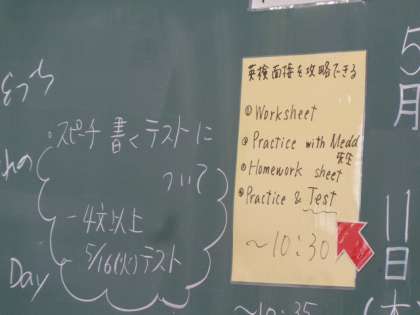 英検面接を攻略できる
① Worksheet
② Practice with Medd
先生
③ Homework sheet
④ Practice & Test
～10:30
・スピーチ書くテストに
ついて
－4文以上
5/16(火)テスト
Day
5月11日
(木)
～10:35